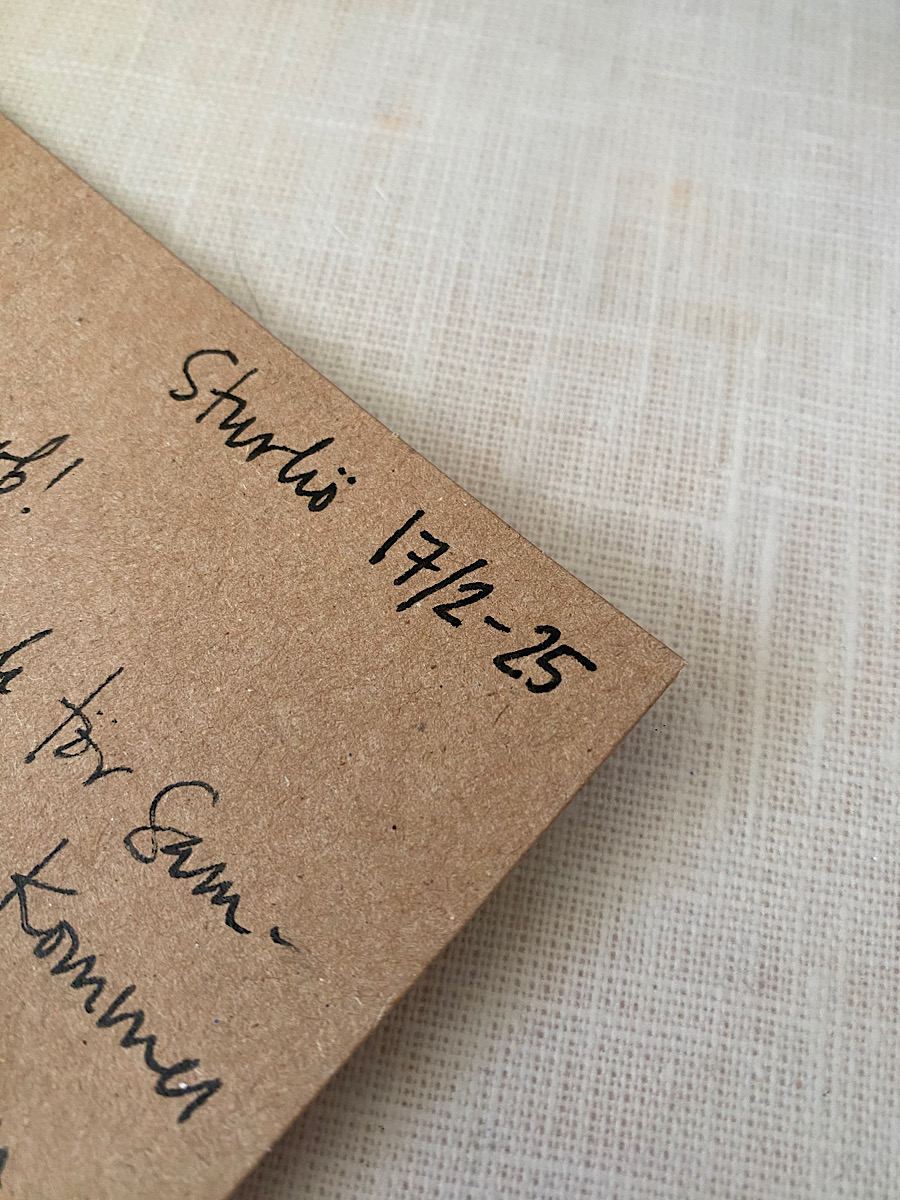 Sturkö 17/2-25
för Sam-
Kommer